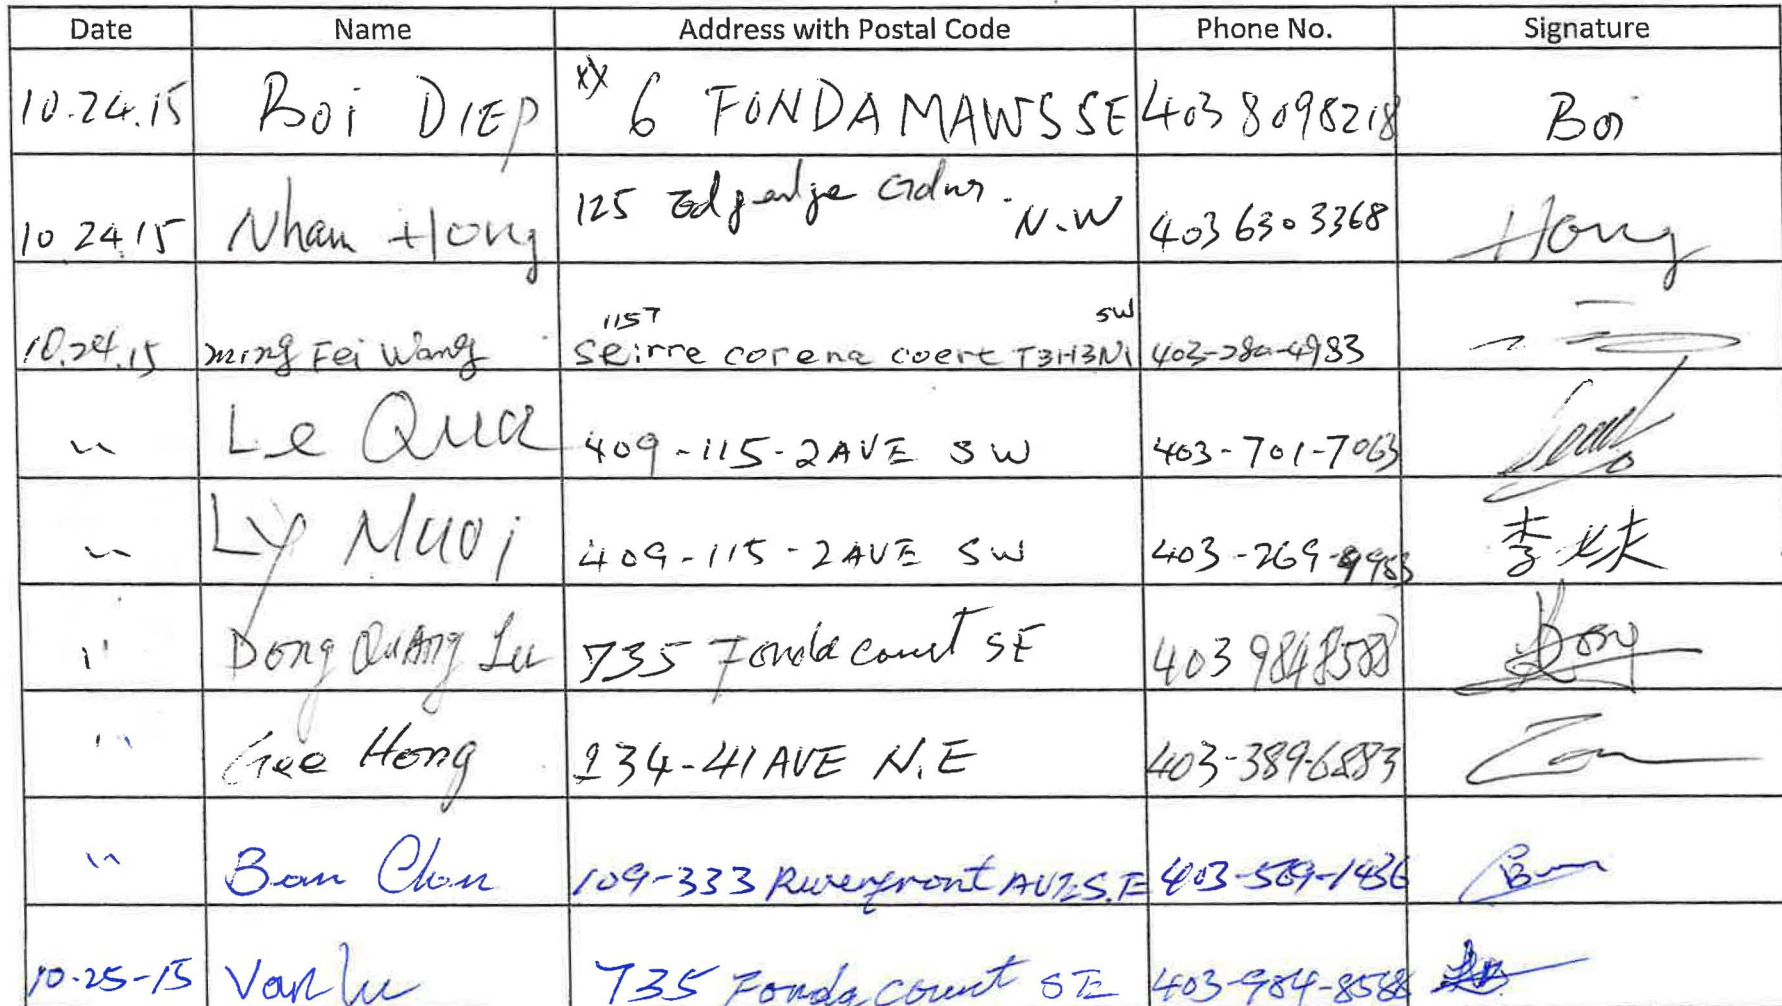 Date Name Address with Postal Code Phone No. Signature
10.24.15 Boi DIEP xx 6 FONDA MAWS SE 403 8098218 Boi
10 24 15 Nhan Hong 125 Gdns. N.W 403 630 3368 Hong
1157 SW
10.24.15 ming Fei Wang Seirre corena coert T3H3N1 403-280-4983
" Le Qua 409-115-2AVE SW 403-701-7063
" Ly Muoi 409-115-2AVE SW 403-269-9983 李
" Dong Quang Lu 735 Fonda court SE 403 984 8588 Dong
" Gee Hong 234-41 AVE N.E 403-389-6883
" Ban Chan 109-333 Riverfront AVE S.E 403-569-1436 Ban
10-25-15 Van Lu 735 Fonda court SE 403-984-8588